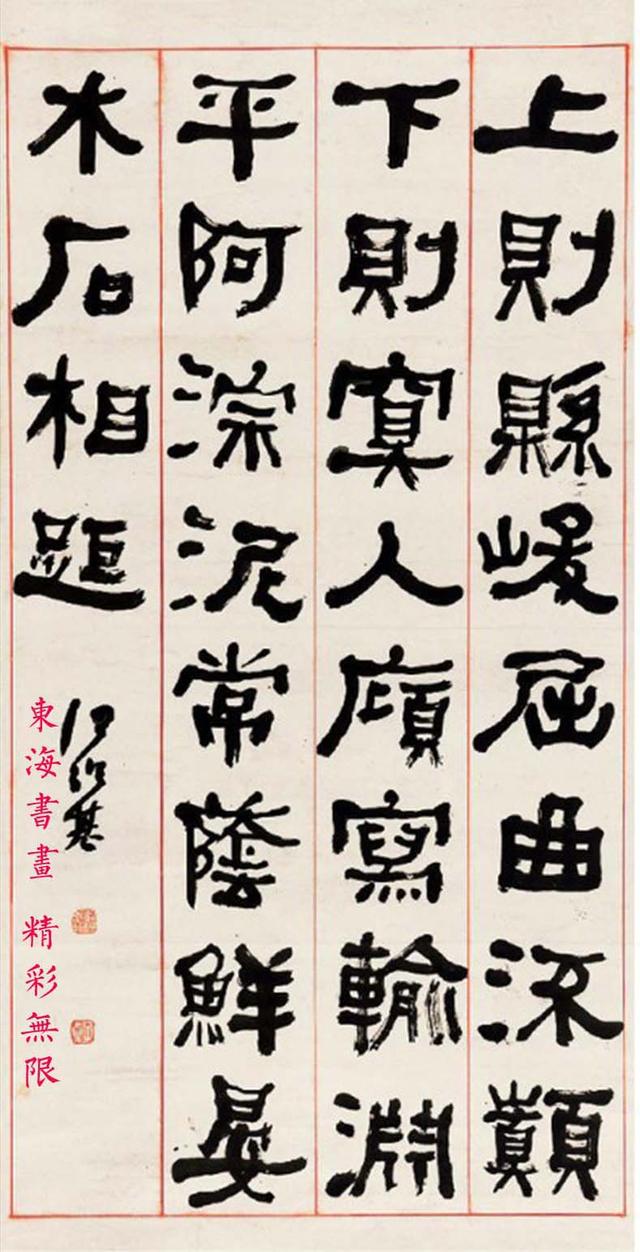 上則縣峻屈曲流顛
下則冥入廎寫輸淵
平阿淙泥常蔭鮮晏
木石相距
何紹基
東海書畫 精彩無限